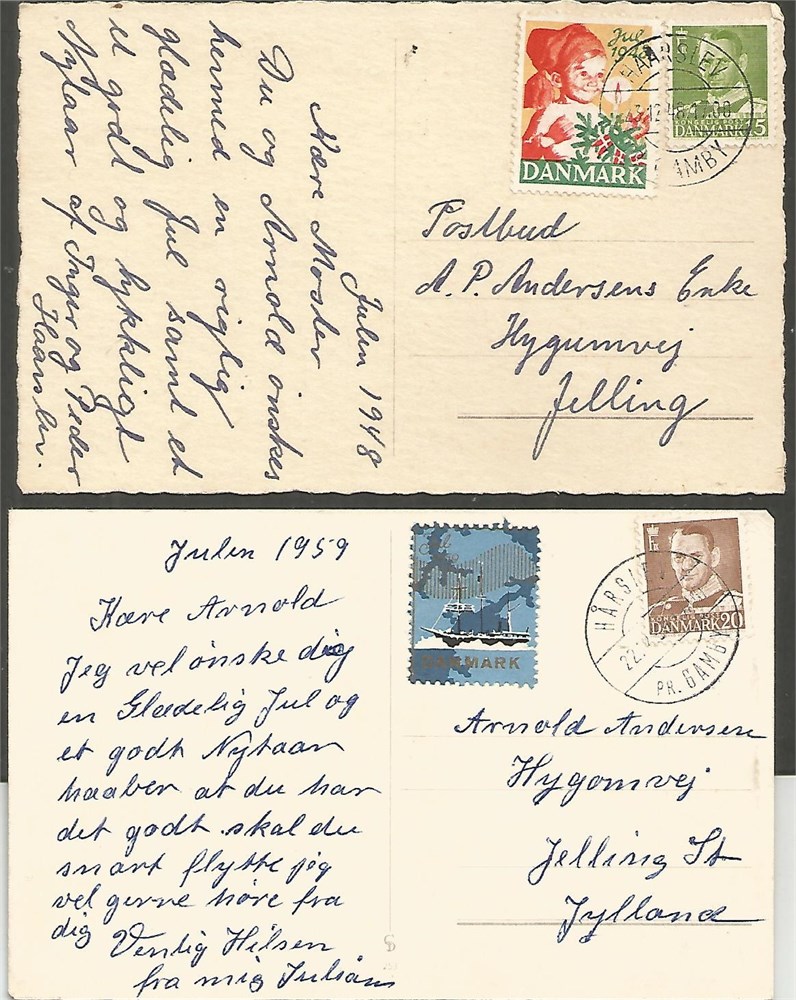 Julen 1948
Kære Moster
Du og Arnold ønskes
hermed en rigtig
glædelig Jul samt et
et godt og lykkeligt
Nytaar af Inger og Peder
Haarslev.
Jul
1948
DANMARK
KONGELIG POST
DANMARK 15
HAARSLEV
23.12.48.17.00
GAMBY
Postbud
A. P. Andersens Enke
Hygumvej
Jelling
Julen 1959
Kære Arnold
Jeg vel ønske dig
en Glædelig Jul og
et godt Nytaar
haaber at du har
det godt. skal du
snart flytte jeg
vel gerne høre fra
dig Venlig Hilsen
fra mig
DANMARK
KONGELIG POST
DANMARK 20
HÅRSLEV
22.
PR. GAMBY
Arnold Andersen
Hygomvej
Jelling St
Jylland